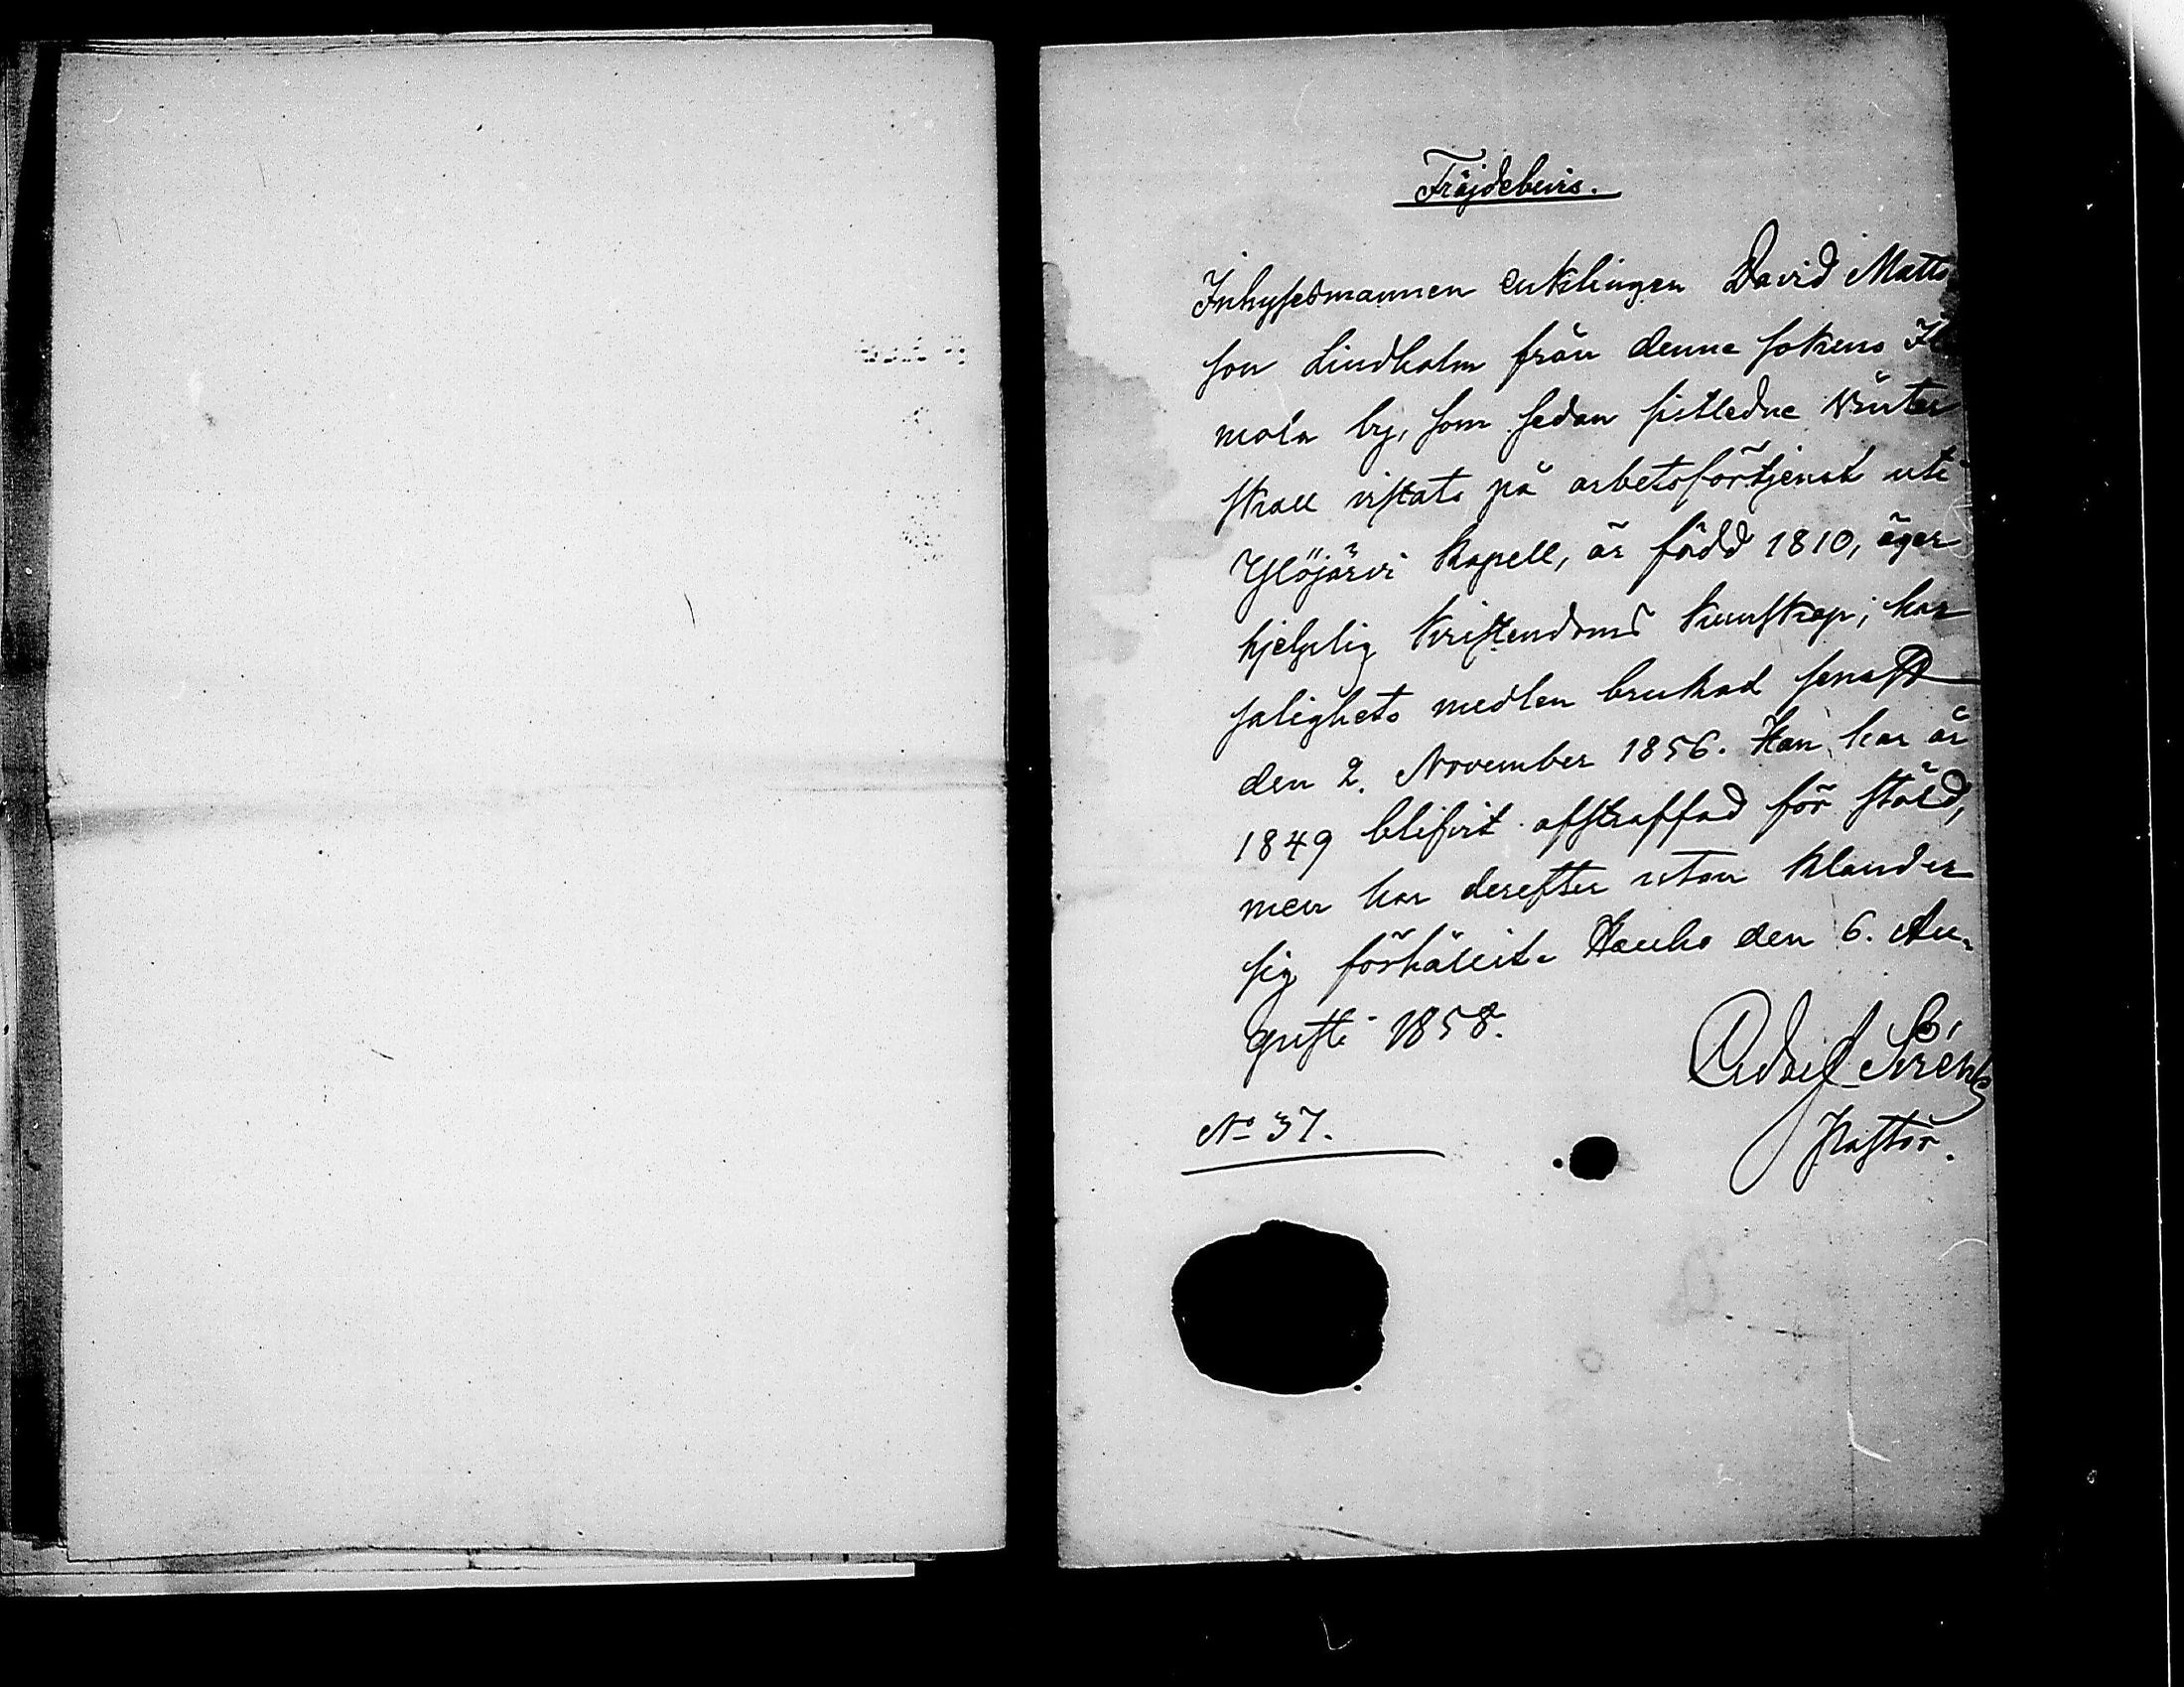 Fräjdebevis.
Inhysesmannen enklingen David Matts
son Lindholm från denne sokens
mola by, som sedan sistledne Vinter
skall vistats på arbetsförtjenst uti
Ylöjärvi Kapell, är född 1810, äger
hjelplig kristendoms kunskap; har
salighets medlen brukad senast
den 2. November 1856. Han har år
1849 blifvit afstraffad för stöld,
men har derefter utan klander
sig förhållit. Hauho den 6. Au-
gusti 1858.
Adolf Sirén
Pastor.
No 37.